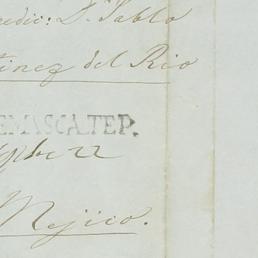 edic: D. Pablo
tinez del Rio
EMASCATEP.
bre 22
Mejico.